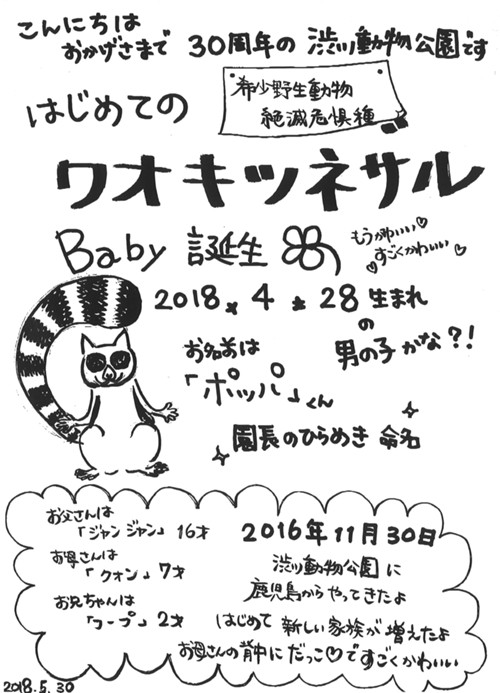 こんにちは
おかげさまで 30周年の 渋川動物公園です
はじめての
希少野生動物
絶滅危惧種
ワオキツネザル
Baby 誕生
もうかわいい♡
♡すごくかわいい♡
2018 4 28 生まれ
の
男の子かな?!
お名前は
「ポッパ」くん
園長のひらめき 命名
お父さんは
「ジャンジャン」16才
お母さんは
「クォン」7才
お兄ちゃんは
「フープ」2才
2016年11月30日
渋川動物公園に
鹿児島からやってきたよ
はじめて 新しい家族が増えたよ
お母さんの背中にだっこ♡ですごくかわいい
2018.5.30